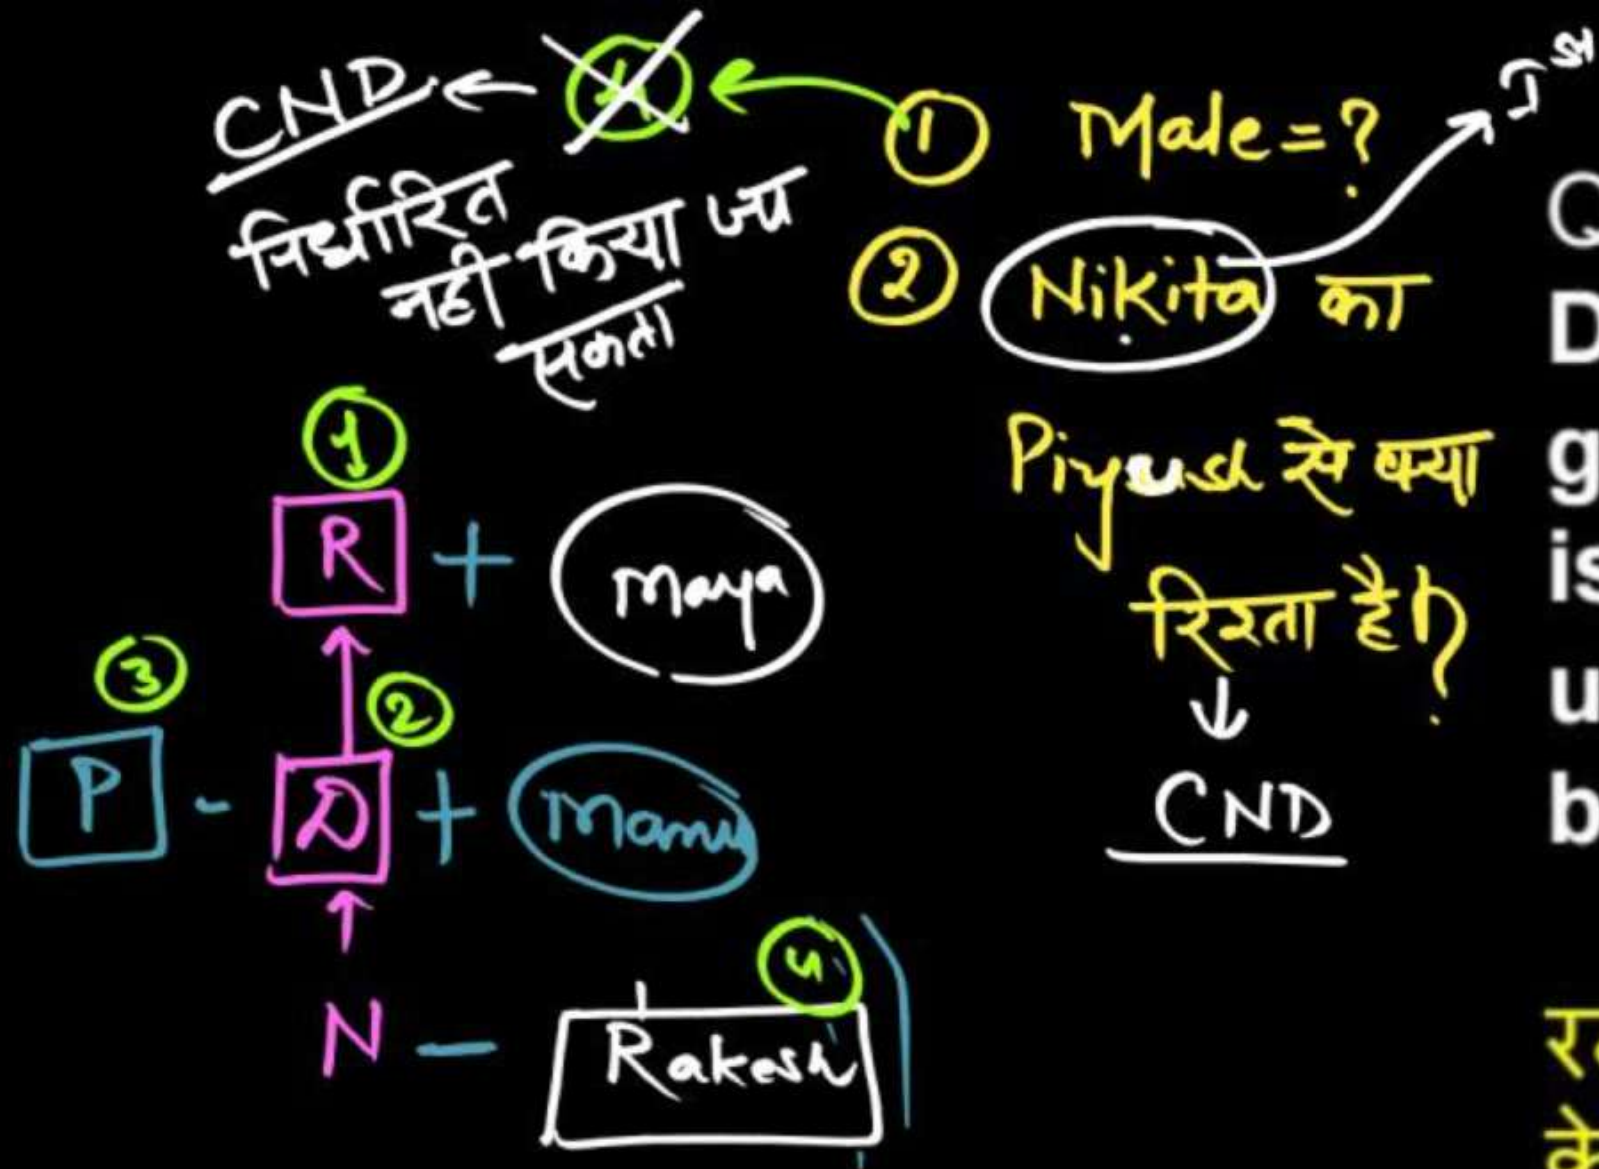 CND ← 4 ← ① Male = ?
निर्धारित
नही किया जा
सकता
② Nikita का
Piyush से क्या
रिश्ता है?
↓
CND
①
R + Maya
③ ②
P - D + Mamy
④
N - Rakesh
Q
D
g
is
u
b